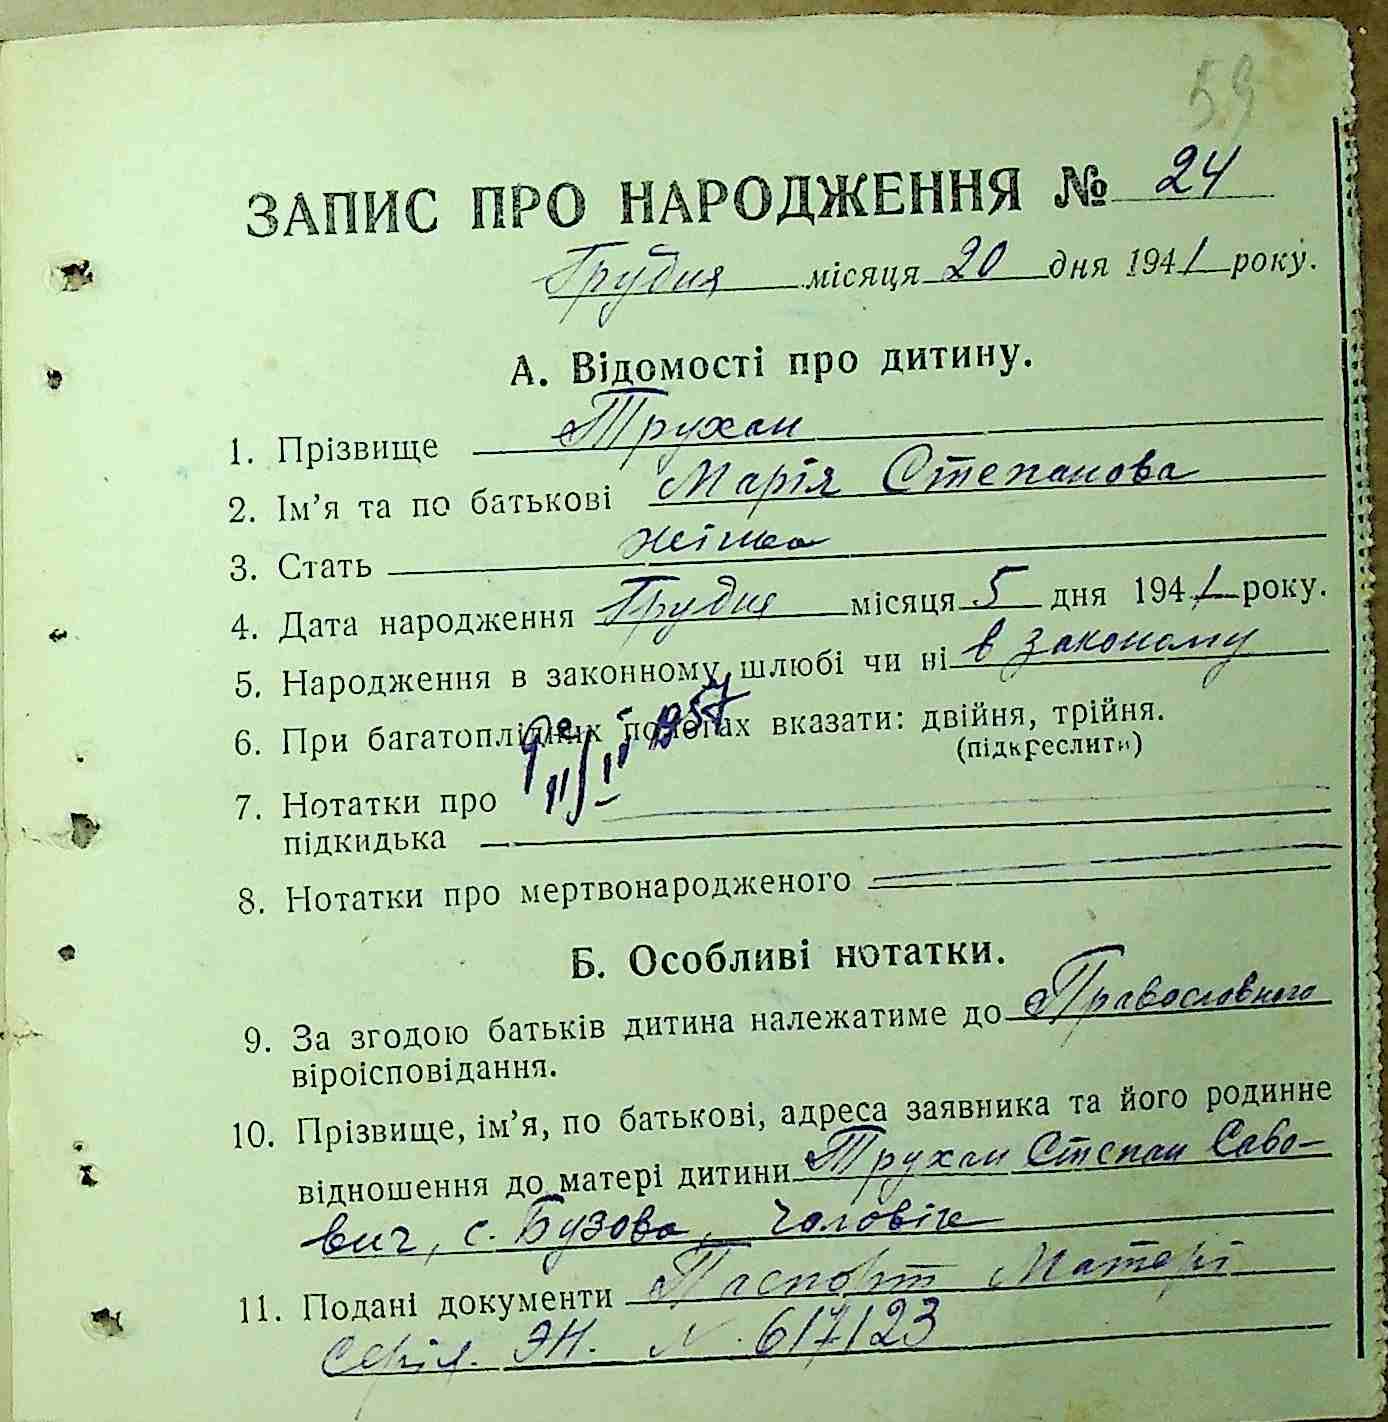 59
ЗАПИС ПРО НАРОДЖЕННЯ № 24
Грудня місяця 20 дня 1941 року.
А. Відомості про дитину.
1. Прізвище Трухан
2. Ім’я та по батькові Марія Степанова
3. Стать жінка
4. Дата народження Грудня місяця 5 дня 1941 року.
5. Народження в законному шлюбі чи ні в законому
6. При багатоплідних пологах вказати: двійня, трійня.
(підкреслити)
1957
11/IV
7. Нотатки про
підкидька
8. Нотатки про мертвонародженого
Б. Особливі нотатки.
9. За згодою батьків дитина належатиме до Православного
віроісповідання.
10. Прізвище, ім’я, по батькові, адреса заявника та його родинне
відношення до матері дитини Трухан Степан Саво-
вич, с. Бузова, чоловік
11. Подані документи Паспорт Матері
серія. ЭН. N. 617123